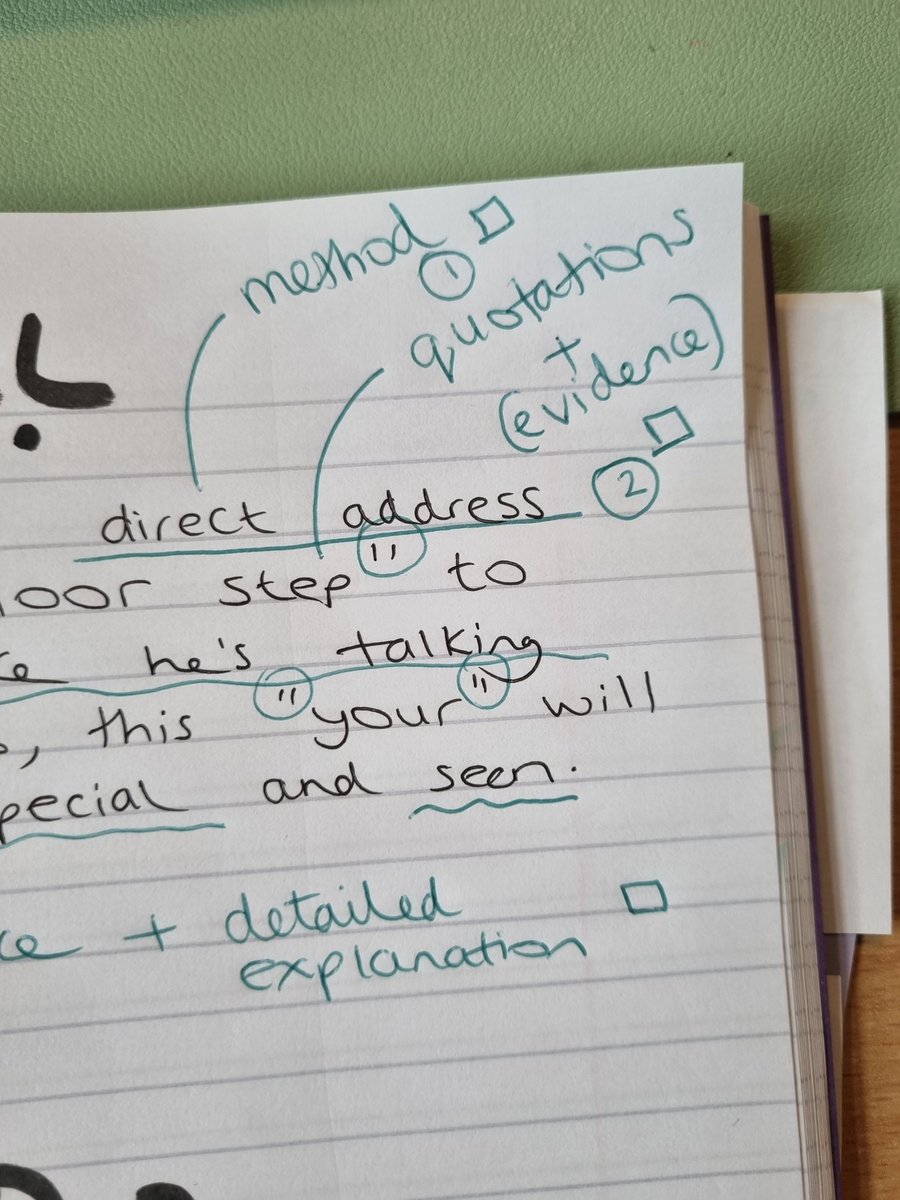 method
①
quotations
+
(evidence)
②
direct address
step" to
he's talking
, this "your" will
and seen.
+ detailed
explanation